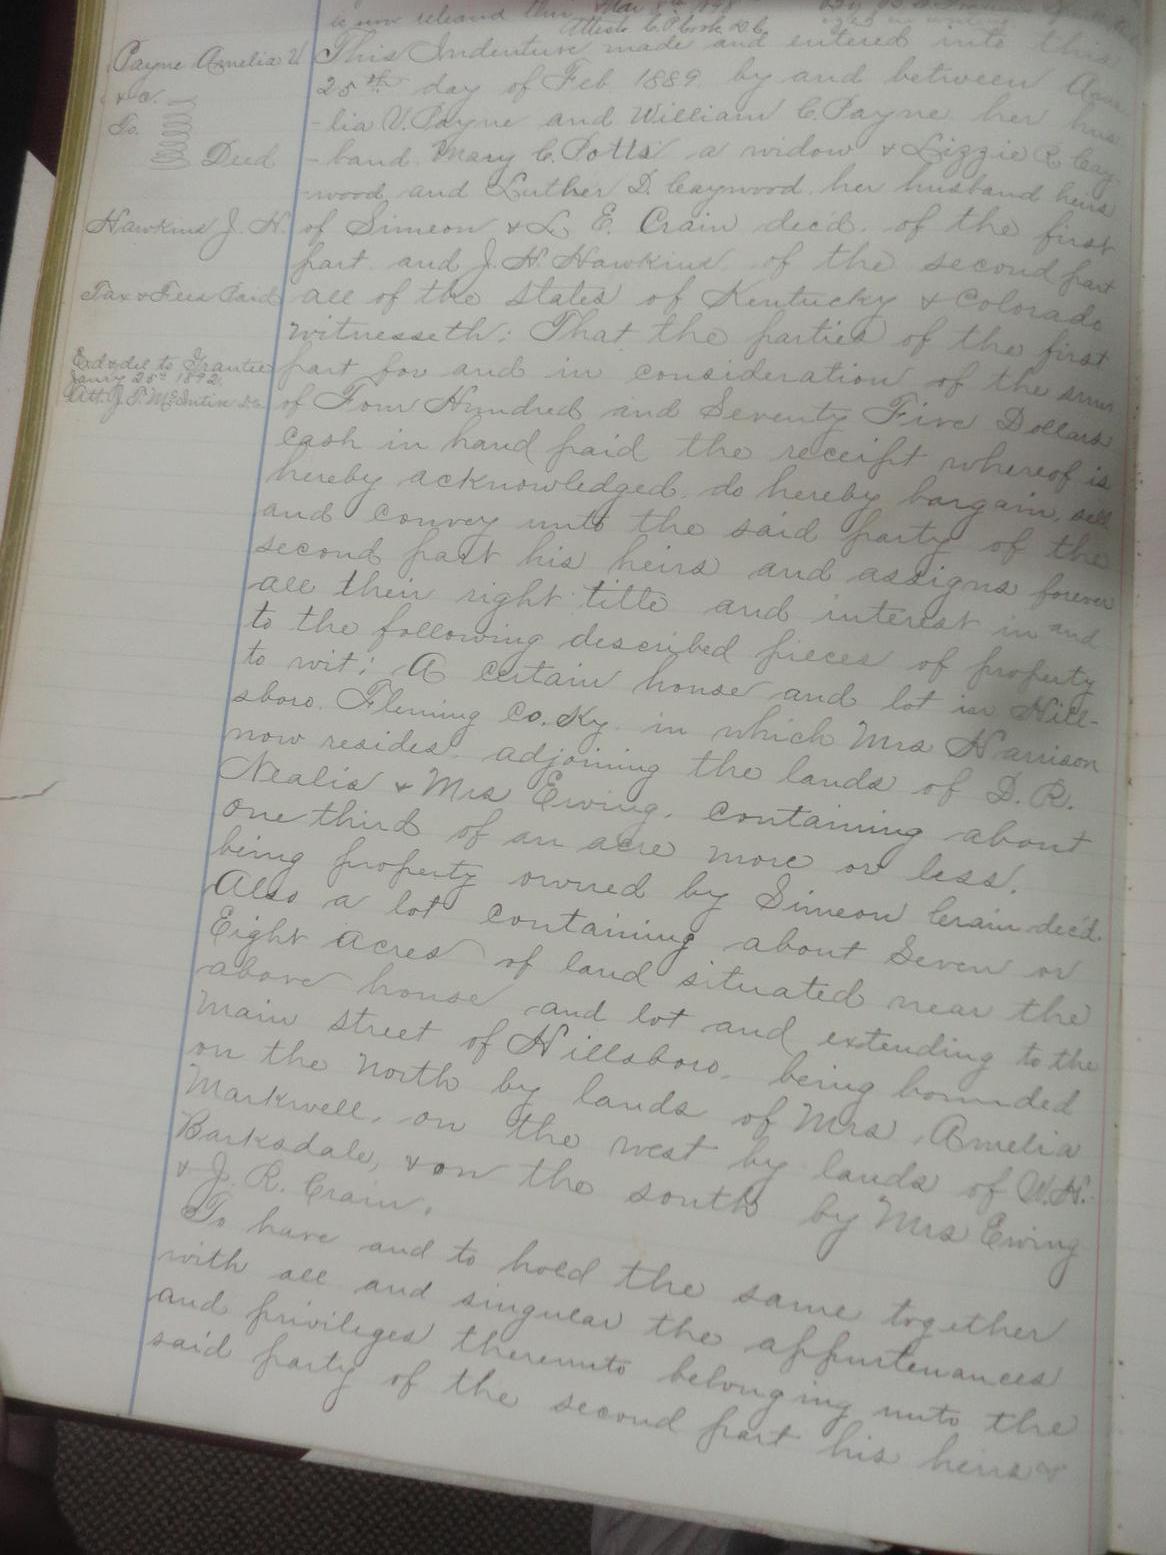 is now released this Mar 8th 1898
Attest C. P. Cook D.C.
Payne Amelia V
&c.
To.
Deed
Hawkins J. H.
Tax & Fees Paid
Exd & del to Grantee
Jany 25th 1892
Att. J. P. McIntire D.C.
This Indenture made and entered into this
25th day of Feb 1889 by and between Ame
-lia V. Payne and William C. Payne her hus
-band. Mary C. Potts a widow & Lizzie R. Cay-
-wood and Luther D. Caywood her husband heirs
of Simeon & L. E. Crain dec'd. of the first
part and J. H. Hawkins of the second part
all of the states of Kentucky & Colorado
witnesseth: That the parties of the first
part for and in consideration of the sum
of Four Hundred and Seventy Five Dollars
cash in hand paid the receipt whereof is
hereby acknowledged. do hereby bargain, sell
and convey unto the said party of the
second part his heirs and assigns forever
all their right title and interest in and
to the following described pieces of property
to wit: A certain house and lot in Hill-
sboro. Fleming Co. Ky. in which Mrs Harrison
now resides, adjoining the lands of D. R.
Nealis & Mrs Ewing. containing about
one third of an acre more or less.
being property owned by Simeon Crain dec'd.
Also a lot containing about Seven or
Eight acres of land situated near the
above house and lot and extending to the
main street of Hillsboro. being bounded
on the north by lands of Mrs. Amelia
Markwell, on the west by lands of W. H.
Barksdale, & on the south by Mrs Ewing
& J. R. Crain.
To have and to hold the same together
with all and singular the appurtenances
and privileges thereunto belonging unto the
said party of the second part his heirs &